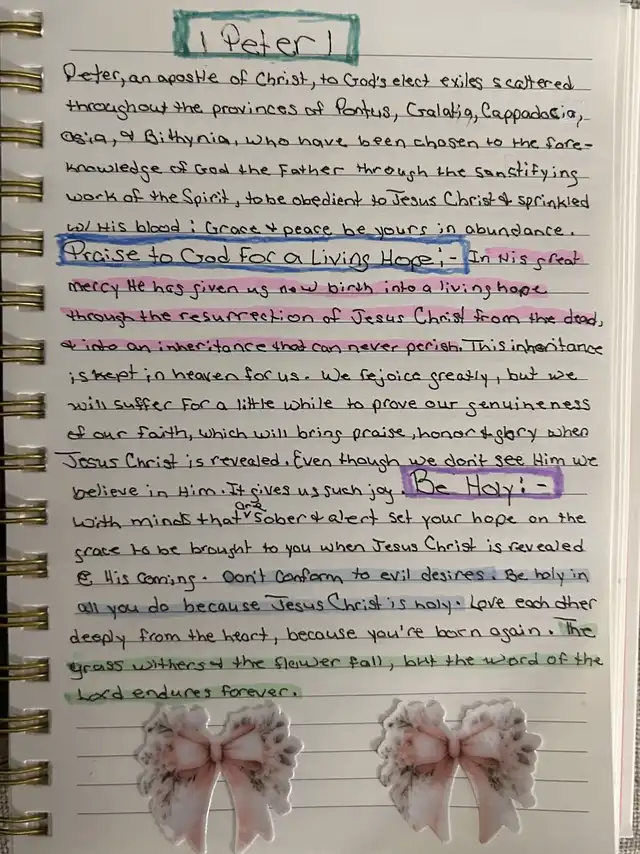 1 Peter 1
Peter, an apostle of Christ, to God's elect exiles scattered
throughout the provinces of Pontus, Galatia, Cappadocia,
asia, & Bithynia, who have been chosen to the fore-
knowledge of God the Father through the sanctifying
work of the Spirit, to be obedient to Jesus Christ & sprinkled
w/ His blood: Grace & peace be yours in abundance.
Praise to God For a Living Hope:- In His great
mercy He has given us new birth into a living hope
through the resurrection of Jesus Christ from the dead,
& into an inheritance that can never perish. This inheritance
is kept in heaven for us. We rejoice greatly, but we
will suffer for a little while to prove our genuineness
of our faith, which will bring praise, honor & glory when
Jesus Christ is revealed. Even though we don't see Him we
believe in Him. It gives us such joy. Be Holy:-
With minds that are sober & alert set your hope on the
grace to be brought to you when Jesus Christ is revealed
@ His coming. Don't conform to evil desires. Be holy in
all you do because Jesus Christ is holy. Love each other
deeply from the heart, because you're born again. The
grass withers & the flower fall, but the word of the
Lord endures forever.